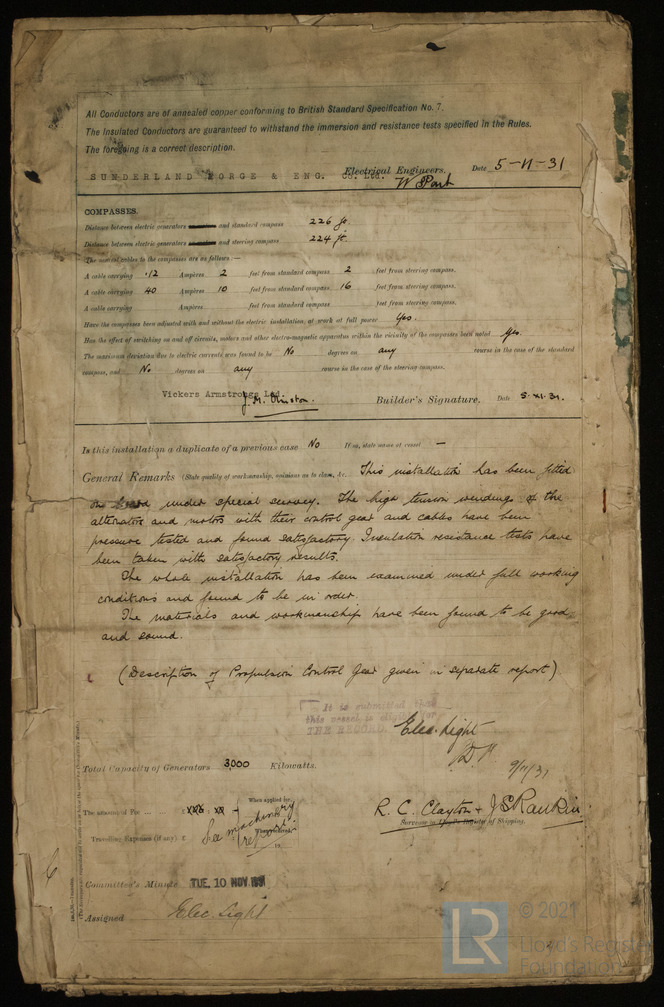 All Conductors are of annealed copper conforming to British Standard Specification No. 7.
The Insulated Conductors are guaranteed to withstand the immersion and resistance tests specified in the Rules.
The foregoing is a correct description.
SUNDERLAND FORGE & ENG. Co. Ltd. Electrical Engineers. Date 5-11-31
COMPASSES.
Distance between electric generators and standard compass 226 ft.
Distance between electric generators and steering compass 224 ft.
The nearest cables to the compasses are as follows:—
A cable carrying .12 Ampires 2 feet from standard compass 2 feet from steering compass.
A cable carrying 40 Ampires 10 feet from standard compass 16 feet from steering compass.
A cable carrying Ampires feet from standard compass feet from steering compass.
Have the compasses been adjusted with and without the electric installation at work at full power Yes.
Has the effect of switching on and off circuits, motors and other electro-magnetic apparatus within the vicinity of the compasses been noted Yes.
The maximum deviation due to electric currents was found to be No degrees on any course in the case of the standard
compass, and No degrees on any course in the case of the steering compass.
Vickers Armstrongs Ltd. Builder's Signature. Date 5.XI.31.
Is this installation a duplicate of a previous case No If so, state name of vessel —
General Remarks (State quality of workmanship, opinions as to class, &c. This installation has been fitted
on board under special survey. The high tension windings of the
alternators and motors with their control gear and cables have been
pressure tested and found satisfactory. Insulation resistance tests have
been taken with satisfactory results.
The whole installation has been examined under full working
conditions and found to be in order.
The materials and workmanship have been found to be good
and sound.
(Description of Propulsion Control Gear given in separate report)
It is submitted that
this vessel is eligible for
THE RECORD. Elec. Light
9/11/31
Total Capacity of Generators 3,000 Kilowatts.
The amount of Fee ... £ When applied for,
Travelling Expenses (if any) £ See machinery report.
R. C. Clayton & J S Rankin
Surveyor to Lloyd's Register of Shipping.
Committee's Minute TUE. 10 NOV 1931
Assigned Elec. Light
LR © 2021
Lloyd's Register
Foundation